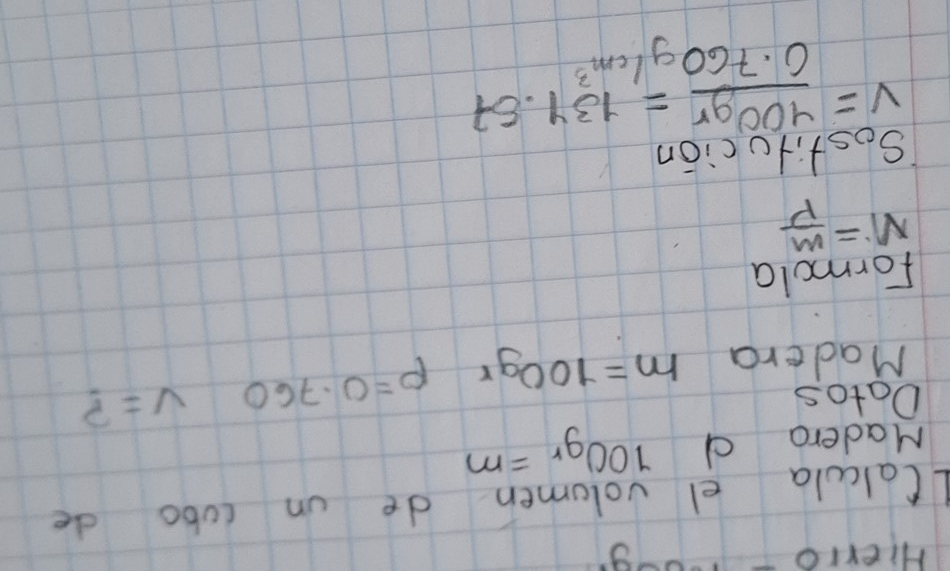 Hierro -
Calcula el volumen de un cubo de
Madera d 100gr = m
Datos
Madera m = 100gr p = 0.760 v = ?
Formula
V = m/p
Sostitución
V = 100gr / 0.760 g/cm³ = 131.57